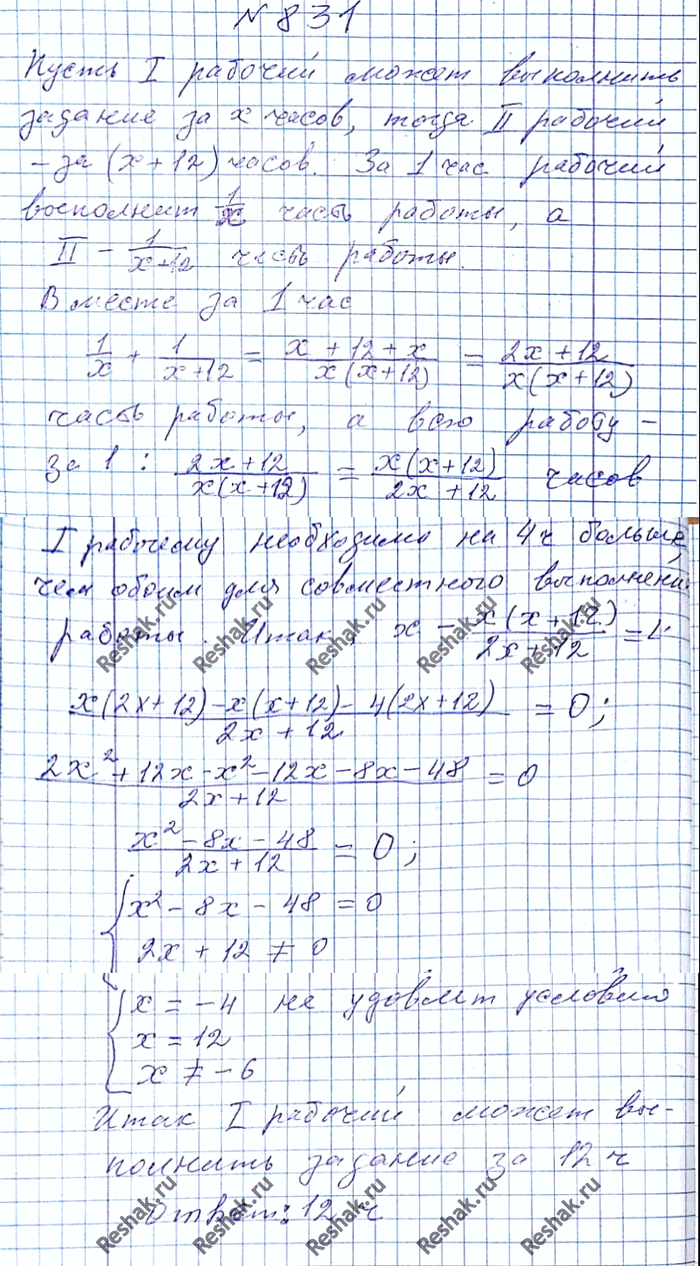 № 831
Пусть I рабочий может выполнить
задание за x часов, тогда II рабочий
– за (x+12) часов. За 1 час рабочий
восполнит 1/x часть работы, а
II – 1/(x+12) часть работы.
Вместе за 1 час
1/x + 1/(x+12) = (x+12+x)/(x(x+12)) = (2x+12)/(x(x+12))
часть работы, а всю работу –
за 1 : (2x+12)/(x(x+12)) = (x(x+12))/(2x+12) часов
I рабочему необходимо на 4ч больше,
чем обоим для совместного выполнени
работы. Итак, x – (x(x+12))/(2x+12) = 4
(x(2x+12)–x(x+12)–4(2x+12))/(2x+12) = 0;
(2x²+12x–x²–12x–8x–48)/(2x+12) = 0
(x²–8x–48)/(2x+12) = 0;
{ x²–8x–48 = 0
2x+12 ≠ 0
{ x = –4 не удовлет условию
x = 12
x ≠ –6
Итак I рабочий может вы-
полнить задание за 12 ч
Ответ: 12 ч
Reshak.ru Reshak.ru Reshak.ru Reshak.ru Reshak.ru
Reshak.ru Reshak.ru Reshak.ru Reshak.ru Reshak.ru